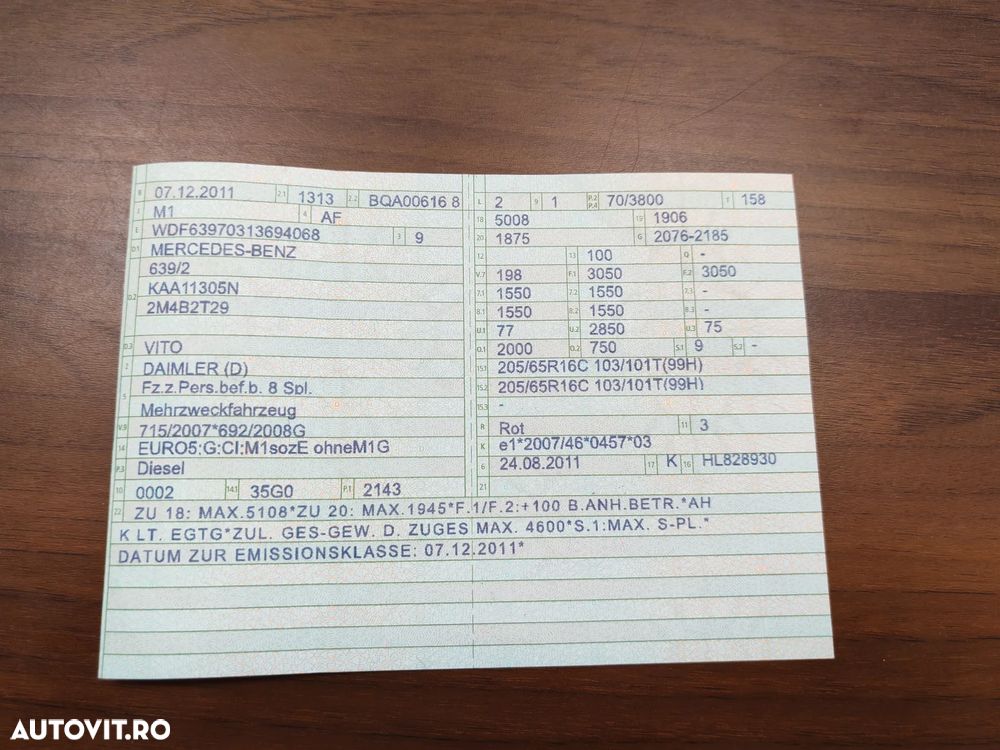 B 07.12.2011 2.1 1313 2.2 BQA00616 8
J M1 4 AF
E WDF63970313694068 3 9
D.1 MERCEDES-BENZ
639/2
D.2 KAA11305N
2M4B2T29
D.3 VITO
2 DAIMLER (D)
5 Fz.z.Pers.bef.b. 8 Spl.
Mehrzweckfahrzeug
V.9 715/2007*692/2008G
14 EURO5;G;CI;M1sozE ohneM1G
P.3 Diesel
10 0002 14.1 35G0 P.1 2143
L 2 9 1 P.2 P.4 70/3800 T 158
18 5008 19 1906
20 1875 G 2076-2185
12 13 100 Q -
V.7 198 F.1 3050 F.2 3050
7.1 1550 7.2 1550 7.3 -
8.1 1550 8.2 1550 8.3 -
U.1 77 U.2 2850 U.3 75
O.1 2000 O.2 750 S.1 9 S.2 -
15.1 205/65R16C 103/101T(99H)
15.2 205/65R16C 103/101T(99H)
15.3 -
R Rot 11 3
K e1*2007/46*0457*03
6 24.08.2011 17 K 16 HL828930
21
22 ZU 18: MAX.5108*ZU 20: MAX.1945*F.1/F.2:+100 B.ANH.BETR.*AH
K LT. EGTG*ZUL. GES-GEW. D. ZUGES MAX. 4600*S.1:MAX. S-PL.*
DATUM ZUR EMISSIONSKLASSE: 07.12.2011*
AUTOVIT.RO